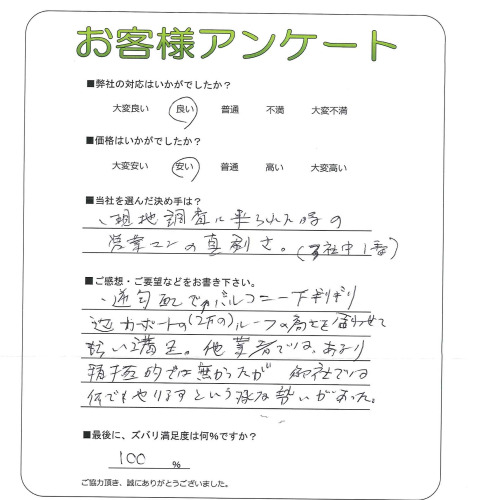 お客様アンケート
■弊社の対応はいかがでしたか？
大変良い 良い 普通 不満 大変不満
■価格はいかがでしたか？
大変安い 安い 普通 高い 大変高い
■当社を選んだ決め手は？
、現地調査に来られた時の
営業マンの真剣さ。(3社中1番)
■ご感想・ご要望などをお書き下さい。
、逆勾配でバルコニー下ギリギリ
迄カーポートの(2方の)ルーフの高さを合わせて
満足。他業者では、あまり
積極的では無かったが 御社では
何でもやりますという様な勢いがあった。
■最後に、ズバリ満足度は何%ですか？
100 %
ご協力頂き、誠にありがとうございました。